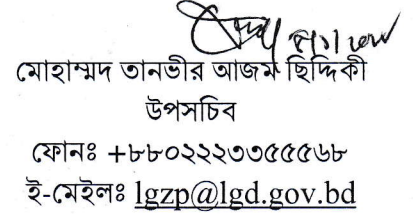 মোহাম্মদ তানভীর আজম ছিদ্দিকী
উপসচিব
ফোনঃ +৮৮০২২২৩৩৫৫৫৬৮
ই-মেইলঃ lgzp@lgd.gov.bd